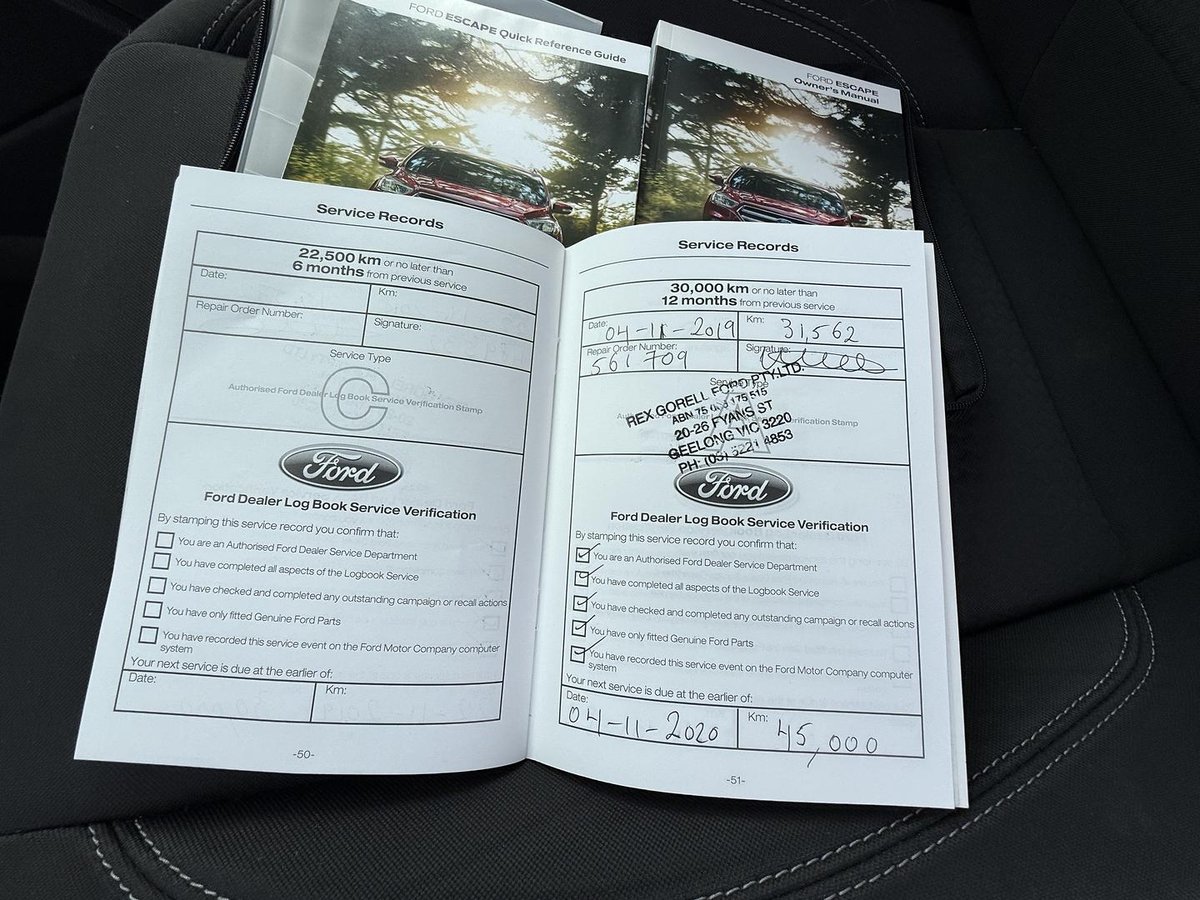 FORD ESCAPE Quick Reference Guide
FORD ESCAPE
Owner's Manual
Service Records
22,500 km or no later than
6 months from previous service
Date:
Km:
Repair Order Number:
Signature:
Service Type
C
Authorised Ford Dealer Log Book Service Verification Stamp
Ford
Ford Dealer Log Book Service Verification
By stamping this service record you confirm that:
You are an Authorised Ford Dealer Service Department
You have completed all aspects of the Logbook Service
You have checked and completed any outstanding campaign or recall actions
You have only fitted Genuine Ford Parts
You have recorded this service event on the Ford Motor Company computer
system
Your next service is due at the earlier of:
Date:
Km:
-50-
Service Records
30,000 km or no later than
12 months from previous service
Date: 04-11-2019
Km: 31,562
Repair Order Number: 561 709
Signature:
Service Type
REX GORELL FORD PTY.LTD.
ABN 75 175 515
20-26 FYANS ST
GEELONG VIC 3220
PH: (03) 5221 4853
Verification Stamp
Ford
Ford Dealer Log Book Service Verification
By stamping this service record you confirm that:
You are an Authorised Ford Dealer Service Department
You have completed all aspects of the Logbook Service
You have checked and completed any outstanding campaign or recall actions
You have only fitted Genuine Ford Parts
You have recorded this service event on the Ford Motor Company computer
system
Your next service is due at the earlier of:
Date: 04-11-2020
Km: 45,000
-51-